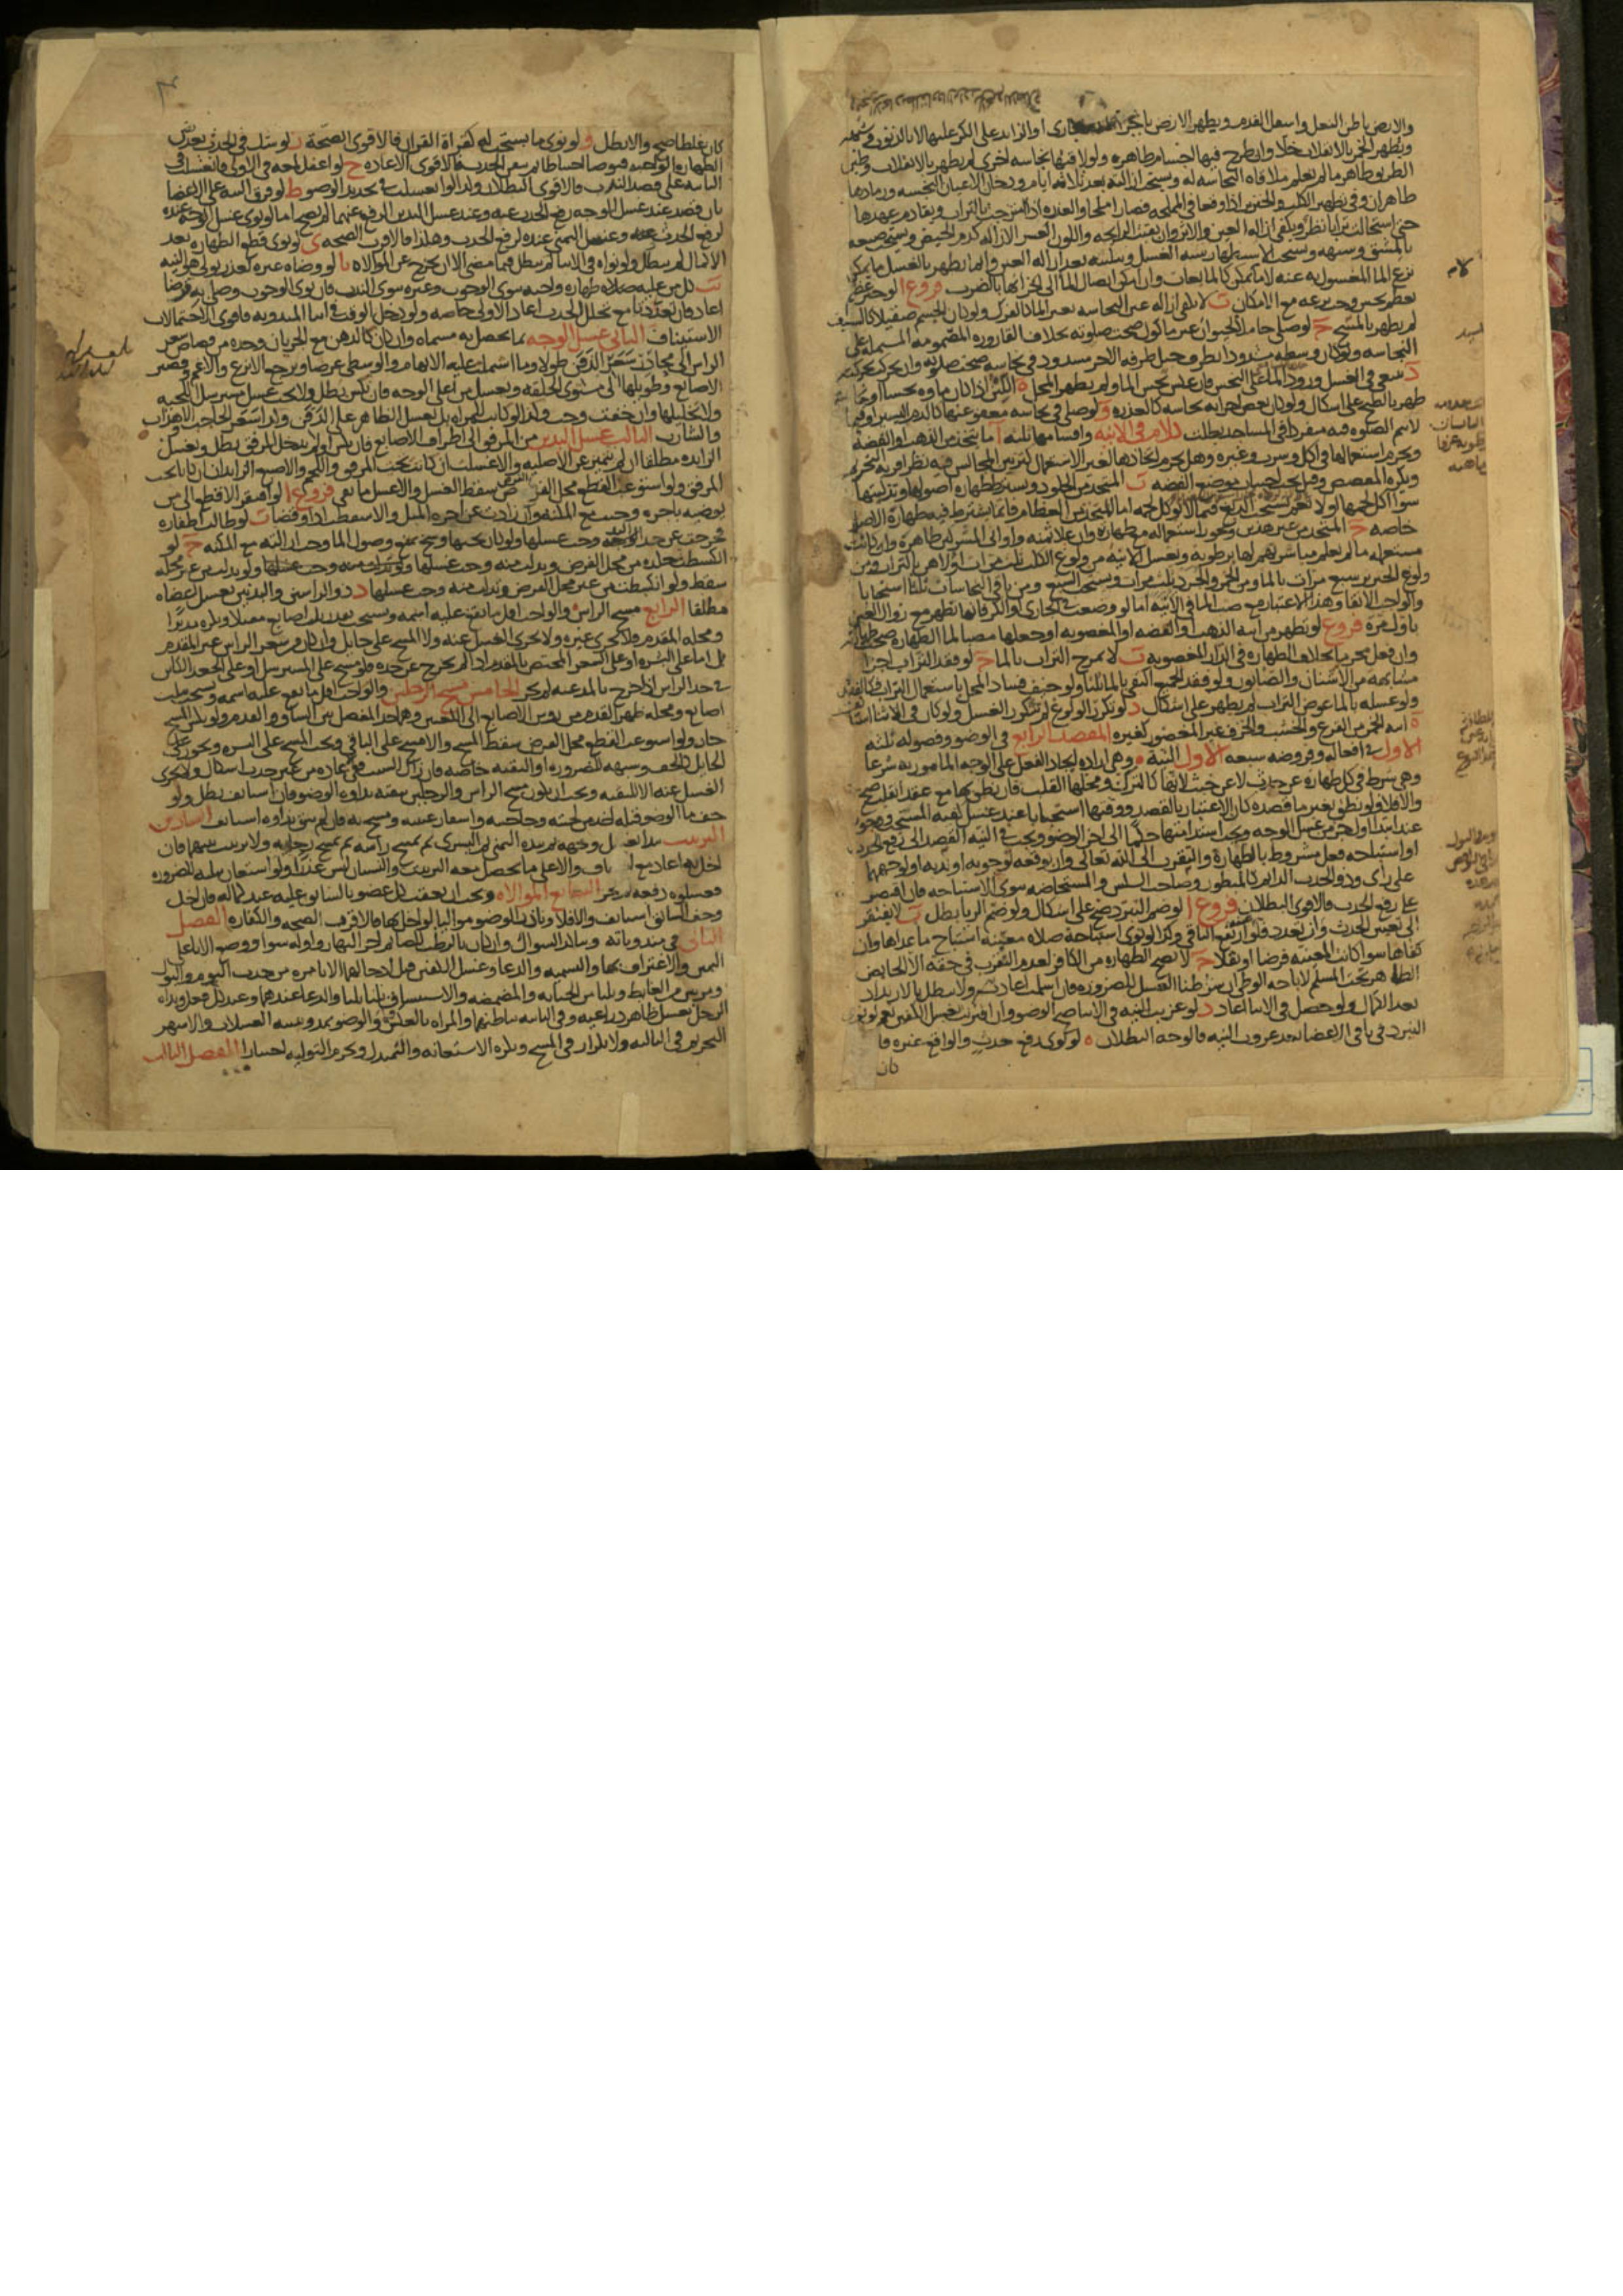 والارض باطن النعل واسفل القدم ويطهر الارض باجرا الجارى او الزايد على الكر عليها لا بالذنوب
ويطهر الخمر بالانقلاب خلا وان طرح فيها اجسام طاهره ولو لاقتها نجاسه اخرى لم يطهر بالانقلاب وطين
الطريق طاهر ما لم يعلم ملاقاه النجاسه له ويستحب ازالته بعد ثلاثه ايام ودخان الاعيان النجسه ورمادها
طاهران وفى تطهير الكلب والخنزير اذا وقعا فى المملحه فصارا ملحا والعذره اذا امتزجت بالتراب وتقادم عهدها
حتى استحالت ترابا نظر ويكفى ازاله العين والاثر وان بقيت الرايحه واللون العسر الازاله كدم الحيض ويستحب صبغه
بالمشق وشبهه ويستحب الاستظهار بتثنيه الغسل وتثليثه بعد ازاله العين وانما يطهر بالغسل ما يمكن
نزع الما المغسول به عنه لا ما لا يمكن كالمايعات وان امكن ايصال الما الى اجزائها بالضرب فروع ا لو جبر عظمه
بعظم نجس وجب نزعه مع الامكان ب لا يكفى ازاله عين النجاسه بغير الما كالفرك ولو كان الجسم صقيلا كالسيف
لم يطهر بالمسح ج لو صلى حاملا لحيوان غير ماكول صحت صلوته بخلاف القاروره المضمومه المشتمله على
النجاسه ولو كان وسطه مشدودا بطرف حبل طرفه الاخر مشدود فى نجاسه صحت صلوته وان تحركت بحركته
د ينبغى فى الغسل ورود الما على النجس فان عكس نجس الما ولم يطهر المحل ه اللبن اذا كان ماوه نجسا او نجاسه
طهر بالطبخ على اشكال ولو كان بعض اجزايه نجاسه كالعذره و لو صلى فى نجاسه معفو عنها كالدم اليسير او فيما
لا يتم الصلوه فيه منفردا فى المساجد بطلت كلام فى الانيه واقسامها ثلثه ا ما يتخذ من الذهب او الفضه
ويحرم استعمالها فى اكل وشرب وغيره وهل يحرم اتخاذها لغير الاستعمال كتزيين المجالس فيه نظر اقربه التحريم
ويكره المفضض وقيل يجب اجتناب موضع الفضه ب المتخذ من الجلود ويشترط طهاره اصولها وتذكيتها
سوا اكل لحمها او لا نعم يستحب الدبغ فيما لا يوكل لحمه اما المتخذ من العظام فانما يشترط فيه طهاره الاصل
خاصه ج المتخذ من غير هذين ويجوز استعماله مع طهارته وان غلا ثمنه واوانى المشركين طاهره وان كانت
مستعمله ما لم يعلم مباشرتهم لها برطوبه وتغسل الانيه من ولوغ الكلب ثلث مرات اولاهن بالتراب ومن
ولوغ الخنزير سبع مرات بالما ومن الخمر والجرذ ثلث مرات ويستحب السبع ومن باقى النجاسات ثلثا استحبابا
والواجب الانقا وهذا الاعتبار مع صب الما فى الانيه اما لو وضعت فى الجارى او الكر فانها تطهر مع زوال العين
باول مره فروع لو تطهر من انيه الذهب او الفضه او المغصوبه او جعلها مصبا لما الطهاره صحت طهارته
وان فعل محرما بخلاف الطهاره فى الدار المغصوبه ب لا يمزج التراب بالما ج لو فقد التراب اجزا
مشابهه من الاشنان والصابون ولو فقد الجميع اكتفى بالما ثلثا ولو خيف فساد المحل باستعمال التراب فكالفقد
ولو غسله بالما عوض التراب لم يطهر على اشكال د لو تكرر الولوغ لم يتكرر الغسل ولو كان فى الاثنا استانف
ه انيه الخمر من القرع والخشب والخزف غير المغضور كغيره المقصد الرابع فى الوضو وفصوله ثلثه
الاول فى افعاله وفروضه سبعه الاول النيه وهى اراده ايجاد الفعل على الوجه المامور به شرعا
وهى شرط فى كل طهاره عن حدث لا عن خبث لانها كالترك ومحلها القلب فان نطق بها مع عقد القلب صح
والا فلا ولو نطق بغير ما قصده كان الاعتبار بالقصد ووقتها استحبابا عند غسل كفيه المستحب ووجوبا
عند ابتدا اول جزء من غسل الوجه ويجب استدامتها حكما الى اخر الوضو ويجب فى النيه القصد الى رفع الحدث
او استباحه فعل مشروط بالطهاره والتقرب الى الله تعالى وان يوقعه لوجوبه او ندبه او لوجههما
على راى وذو الحدث الدايم كالمبطون وصاحب السلس والمستحاضه ينوى الاستباحه فان اقتصر
على رفع الحدث فالاقوى البطلان فروع ا لو ضم التبرد صح على اشكال ولو ضم الريا بطل ب لا يفتقر
الى تعيين الحدث وان تعدد فلو عينه ارتفع الباقى وكذا لو نوى استباحه صلاه معينه استباح ما عداها وان
نفاها سوا كانت المعينه فرضا او نفلا ج لا تصح الطهاره من الكافر لعدم التقرب فى حقه الا الحايض
الطاهر تحت المسلم لاباحه الوطى ان شرطنا الغسل للضروره فان اسلمت اعادت ولا يبطل بالارتداد
بعد الكمال ولو حصل فى الاثنا اعاد د لو عزبت النيه فى الاثنا صح الوضو وان اقترنت بغسل الكفين نعم لو نوى
التبرد فى باقى الاعضا بعد عزوب النيه فالوجه البطلان ه لو نوى رفع حدث والواقع غيره فا
كان
كان غلطا صح والا بطل و لو نوى ما يستحب له كقراة القران فالاقوى الصحة ز لو شك فى الحدث بعد تيقن
الطهاره الواجبه فتوضا احتياطا ثم تيقن الحدث فالاقوى الاعاده ح لو اغفل لمعه فى الاولى فانغسلت فى
الثانيه على قصد الندب فالاقوى البطلان وكذا لو انغسلت فى تجديد الوضو ط لو فرق النيه على الاعضا
بان قصد عند غسل الوجه رفع الحدث عنه وعند غسل اليدين الرفع عنهما لم يصح اما لو نوى غسل الوجه عنده
لرفع الحدث وغسل اليمنى عنده لرفع الحدث وهكذا فالاقرب الصحه ى لو نوى قطع الطهاره بعد
الاكمال لم تبطل ولو نواه فى الاثنا لم تبطل فيما مضى الا ان يخرج عن الموالاه يا لو وضاه غيره لعذر تولى هو النيه
يب كل من عليه طهاره واجبه ينوى الوجوب وغيره ينوى الندب فان نوى الوجوب وصلى به فرضا
اعاد فان تعددتا مع تخلل الحدث اعاد الاولى خاصه ولو دخل الوقت فى اثنا المندوبه فاقوى الاحتمالات
الاستيناف الثانى غسل الوجه بما يحصل به مسماه وان كان كالدهن مع الجريان وحده من قصاص شعر
الراس الى محاذى شعر الذقن طولا وما اشتملت عليه الابهام والوسطى عرضا ويرجع الانزع والاغم وقصير
الاصابع وطويلها الى مستوى الخلقه ويغسل من اعلى الوجه فان نكس بطل ولا يجب غسل مسترسل اللحيه
ولا تخليلها وان خفت وجب وكذا لو كانت للمراه بل يغسل الظاهر على الذقن وكذا شعر الحاجب والاهداب
والشارب الثالث غسل اليدين من المرفق الى اطراف الاصابع فان نكس او لم يدخل المرفق بطل ويغسل
الزايده مطلقا ان لم تتميز عن الاصليه والا غسلت ان كانت تحت المرفق واللحم والاصبع الزايدان ان كانا تحت
المرفق ولو استوعب القطع محل الفرض سقط الغسل والا غسل ما بقى فروع ا لو افتقر الاقطع الى من
يوضيه باجره وجبت مع المكنه وان زادت عن اجره المثل والا سقطت ادا وقضا ب لو طالت اظفاره
فخرجت عن حد اليد وجب غسلها ولو كان تحتها وسخ يمنع وصول الما وجب ازالته مع المكنه ج لو
انكشطت جلده من محل الفرض وتدلت منه وجب غسلها ولو تدلت من غير محله
سقط ولو انكشطت من غير محل الفرض وتدلت منه وجب غسلها د ذو الراسين والبدنين يغسل اعضاه
مطلقا الرابع مسح الراس والواجب اقل ما يقع عليه اسمه ويستحب بقدر ثلث اصابع مقبلا ويكره مدبرا
ومحله المقدم فلا يجزى غيره ولا يجزى الغسل عنه ولا المسح على حايل وان كان من شعر الراس غير المقدم
بل اما على البشره او على الشعر المختص بالمقدم اذا لم يخرج عن حده فلو مسح على المسترسل او على الجعد الكاين
فى حد الراس اذا خرج بالمد عنه لم يجز الخامس مسح الرجلين والواجب اقل ما يقع عليه اسمه ويستحب بثلث
اصابع ومحله ظهر القدم من روس الاصابع الى الكعبين وهما حد المفصل بين الساق والقدم ولو نكس المسح
جاز ولو استوعب القطع محل الفرض سقط المسح والا مسح على الباقى ويجب المسح على البشره ويجوز على
الحايل كالخف وشبهه للضروره او التقيه خاصه فان زال السبب ففى الاعاده من غير حدث اشكال ولا يجزى
الغسل عنه الا للتقيه ويجب ان يكون مسح الراس والرجلين ببقيه نداوه الوضو فان استانف بطل ولو
جف ما الوضو قبله اخذ من لحيته وحاجبيه واشفار عينيه ومسح به فان لم يبق نداوه استانف السادس
الترتيب يبدا بغسل وجهه ثم يده اليمنى ثم اليسرى ثم يمسح راسه ثم يمسح رجليه ولا ترتيب بينهما فان
اخل به اعاد مع الجفاف والا على ما يحصل معه الترتيب والنسيان ليس عذرا ولو استعان بثلثه للضروره
فغسلوه دفعه لم يجز السابع الموالاه ويجب ان يعقب كل عضو بالسابق عليه عند كماله فان اخل
وجف السابق استانف والا فلا وناذر الوضو مواليا لو اخل بها فالاقرب الصحه والكفاره الفصل
الثانى فى مندوباته ويتاكد السواك وان كان بالرطب للصايم اخر النهار واوله سوا ووضع الانا على
اليمين والاغتراف بها والتسميه والدعا وغسل الكفين قبل ادخالهما الانا مره من حدث النوم والبول
ومرتين من الغايط وثلثا من الجنابه والمضمضه والاستنشاق ثلثا ثلثا والدعا عندهما وعند كل فعل وبداه
الرجل بغسل ظاهر ذراعيه وفى الثانيه بباطنهما والمراه بالعكس والوضو بمد وتثنيه الغسلات والاشهر
التحريم فى الثالثه ولا تكرار فى المسح ويكره الاستعانه والتمندل ويحرم التوليه اختيارا الفصل الثالث